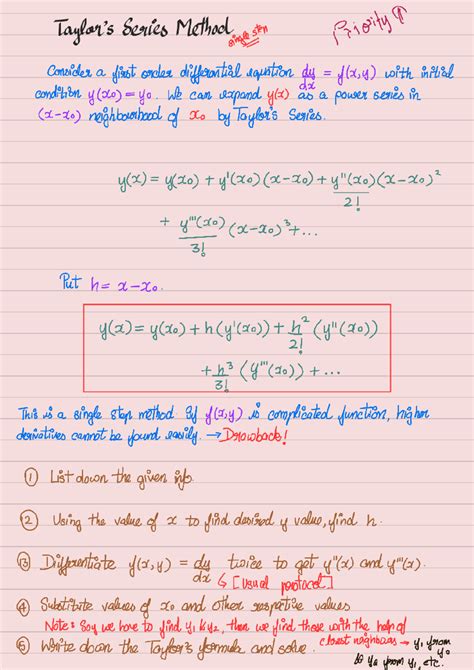 Taylor's Series Method single step Priority ↑
Consider a first order differential equation dy/dx = f(x,y) with initial
condition y(x₀) = y₀. We can expand y(x) as a power series in
(x-x₀) neighbourhood of x₀ by Taylor's Series.
y(x) = y(x₀) + y'(x₀)(x-x₀) + y''(x₀)(x-x₀)²/2!
+ y'''(x₀)/3! (x-x₀)³ + ...
Put h = x-x₀.
y(x) = y(x₀) + h(y'(x₀)) + h²/2! (y''(x₀))
+ h³/3! (y'''(x₀)) + ...
This is a single step method. If f(x,y) is complicated function, higher
derivatives cannot be found easily. → Drawback!
① List down the given info.
② Using the value of x to find desired y value, find h.
③ Differentiate f(x,y) = dy/dx twice to get y''(x) and y'''(x).
↳ [Usual protocol]
④ Substitute values of x₀ and other respective values
Note: Say we have to find y₁ & y₂, then we find those with the help of
closest neighbours → y₁ from y₀
⑤ Write down the Taylor's formula and solve.
y₂ from y₁, etc.